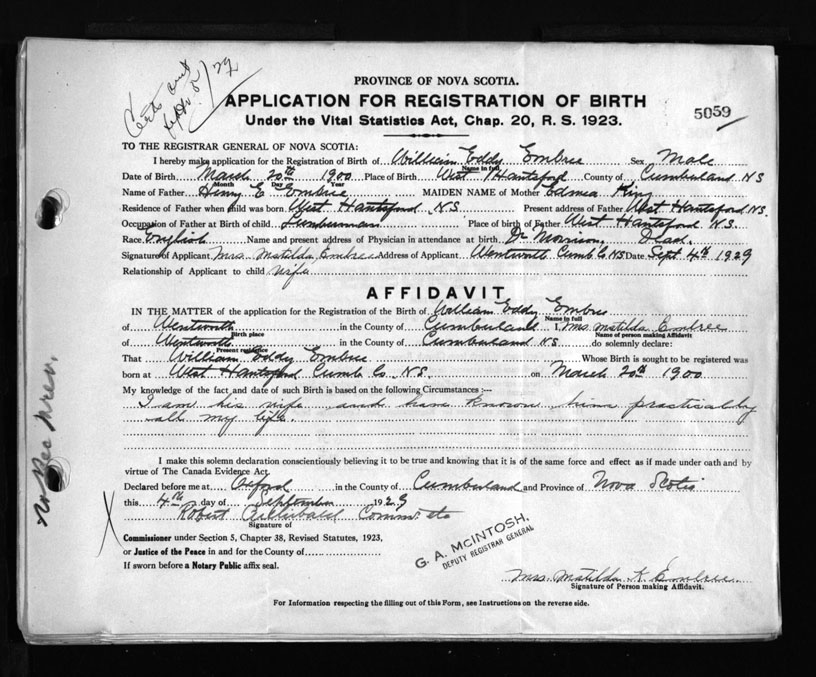 Certs out
Sept. 5/29
PROVINCE OF NOVA SCOTIA.
APPLICATION FOR REGISTRATION OF BIRTH
Under the Vital Statistics Act, Chap. 20, R. S. 1923.
5059
TO THE REGISTRAR GENERAL OF NOVA SCOTIA:
I hereby make application for the Registration of Birth of William Eddy Embree Sex Male
Name in full
Date of Birth March 20th 1900 Place of Birth West Hantsford County of Cumberland NS
Month Day Year
Name of Father Henry E Embree MAIDEN NAME of Mother Edmea King
Residence of Father when child was born West Hantsford N.S. Present address of Father West Hantsford NS.
Occupation of Father at Birth of child Lumberman Place of birth of Father West Hantsford N.S.
Race English Name and present address of Physician in attendance at birth Dr Morrison Dead.
Signature of Applicant Mrs. Matilda Embree Address of Applicant Wentworth Cumb Co NS Date Sept 4th 1929
Relationship of Applicant to child wife
AFFIDAVIT
IN THE MATTER of the application for the Registration of the Birth of William Eddy Embree
Name in full
of Wentworth in the County of Cumberland I, Mrs Matilda Embree
Birth place Name of person making Affidavit
of Wentworth in the County of Cumberland NS do solemnly declare:
Present residence
That William Eddy Embree Whose Birth is sought to be registered was
born at West Hantsford Cumb Co. N.S. on March 20th 1900
My knowledge of the fact and date of such Birth is based on the following Circumstances :—
I am his wife and have known him practically
all my life.
I make this solemn declaration conscientiously believing it to be true and knowing that it is of the same force and effect as if made under oath and by
virtue of The Canada Evidence Act.
Declared before me at Oxford in the County of Cumberland and Province of Nova Scotia
this 4th day of September 1929
Robert Archibald Commr etc
Signature of
Commissioner under Section 5, Chapter 38, Revised Statutes, 1923,
or Justice of the Peace in and for the County of
If sworn before a Notary Public affix seal.
G. A. McINTOSH,
DEPUTY REGISTRAR GENERAL
Mrs. Matilda K. Embree
Signature of Person making Affidavit.
For Information respecting the filling out of this Form, see Instructions on the reverse side.
No Rec